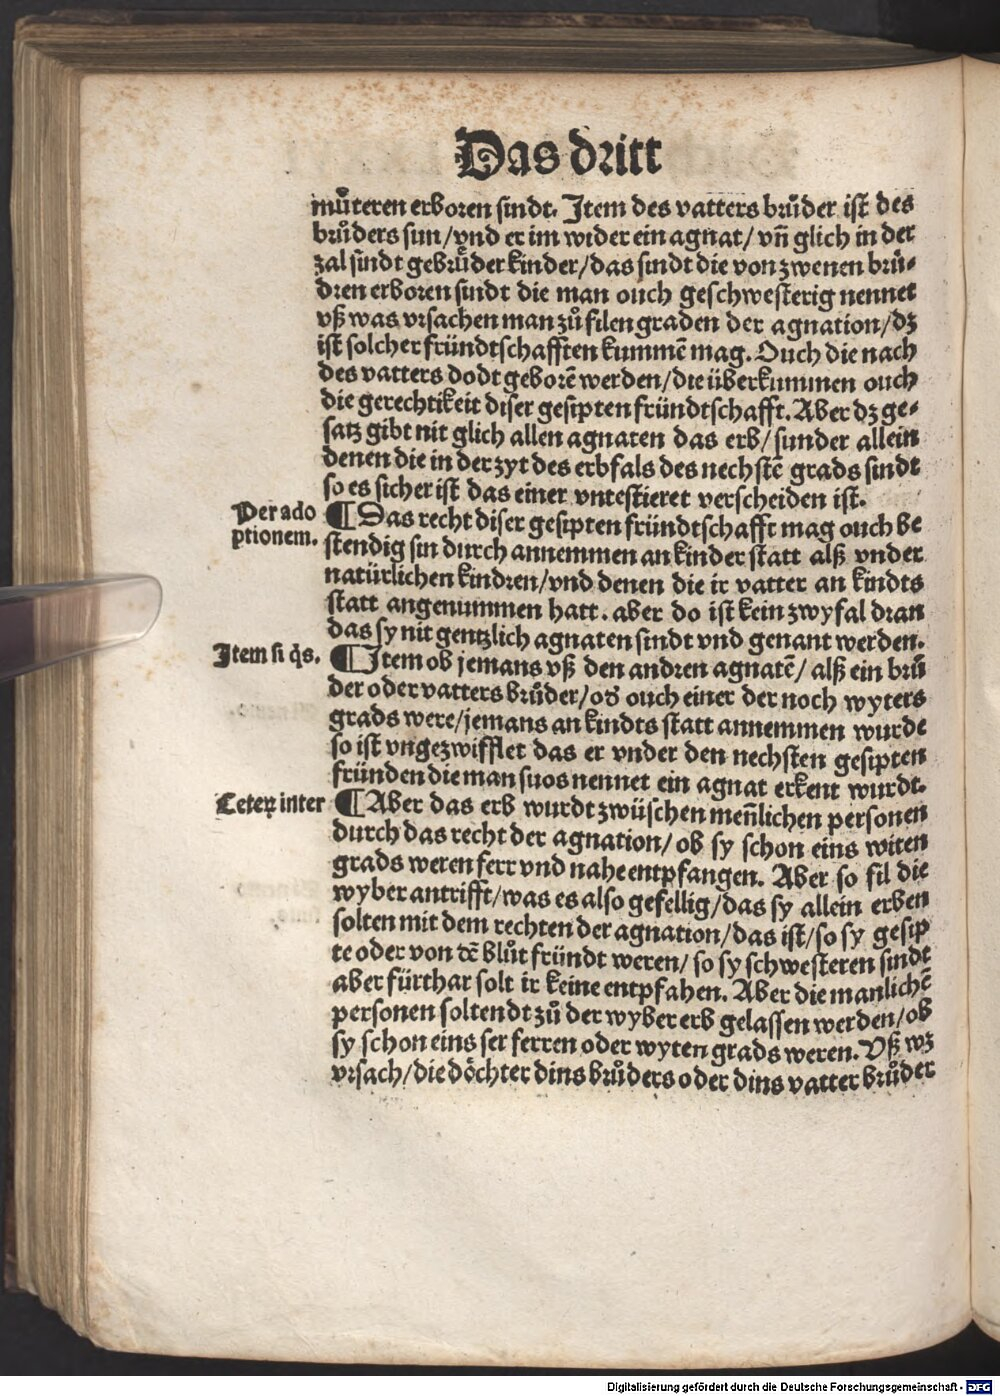 Das dritt
muͤteren erboren sindt. Item des vatters bruͦder ist des
bruͦders sun/vnd er im wider ein agnat/ vñ glich in der
zal sindt gebruͤder kinder/das sindt die von zwenen bruͤ-
dren erboren sindt die man ouch geschwesterig nennet
vß was vrsachen man zuͦ filen graden der agnation/dz
ist solcher fründtschafften kummē mag. Ouch die nach
des vatters dodt geborē werden/die überkummen ouch
die gerechtikeit diser gesipten fründtschafft. Aber dz ge-
satz gibt nit glich allen agnaten das erb/sunder allein
denen die in der zyt des erbfals des nechstē grads sindt
so es sicher ist das einer vntestieret verscheiden ist.
Per ado
ptionem.
¶ Das recht diser gesipten fründtschafft mag ouch be
stendig sin durch annemmen an kinder statt alß vnder
natürlichen kindren/vnd denen die ir vatter an kindts
statt angenummen hatt. aber do ist kein zwyfal dran
das sy nit gentzlich agnaten sindt vnd genant werden.
Item si q̇s.
¶ Item ob jemans vß den andren agnatē/ alß ein bruͦ
der oder vatters bruͦder/od̕ ouch einer der noch wyters
grads were/jemans an kindts statt annemmen wurde
so ist vngezwifflet das er vnder den nechsten gesipten
fründen die man suos nennet ein agnat erkent wurdt.
Ceteꝝ inter
¶ Aber das erb wurdt zwüschen meñlichen personen
durch das recht der agnation/ ob sy schon eins witen
grads weren ferr vnd nahe entpfangen. Aber so fil die
wyber antrifft/was es also gefellig/das sy allein erben
solten mit dem rechten der agnation/das ist/so sy gesip
te oder von dē bluͦt fründt weren/ so sy schwesteren sindt
aber fürthar solt ir keine entpfahen. Aber die manlichē
personen soltendt zuͦ der wyber erb gelassen werden/ob
sy schon eins ser ferren oder wyten grads weren. Vß wz
vrsach/die doͤchter dins bruͦders oder dins vatter bruͦder
Digitalisierung gefördert durch die Deutsche Forschungsgemeinschaft - DFG